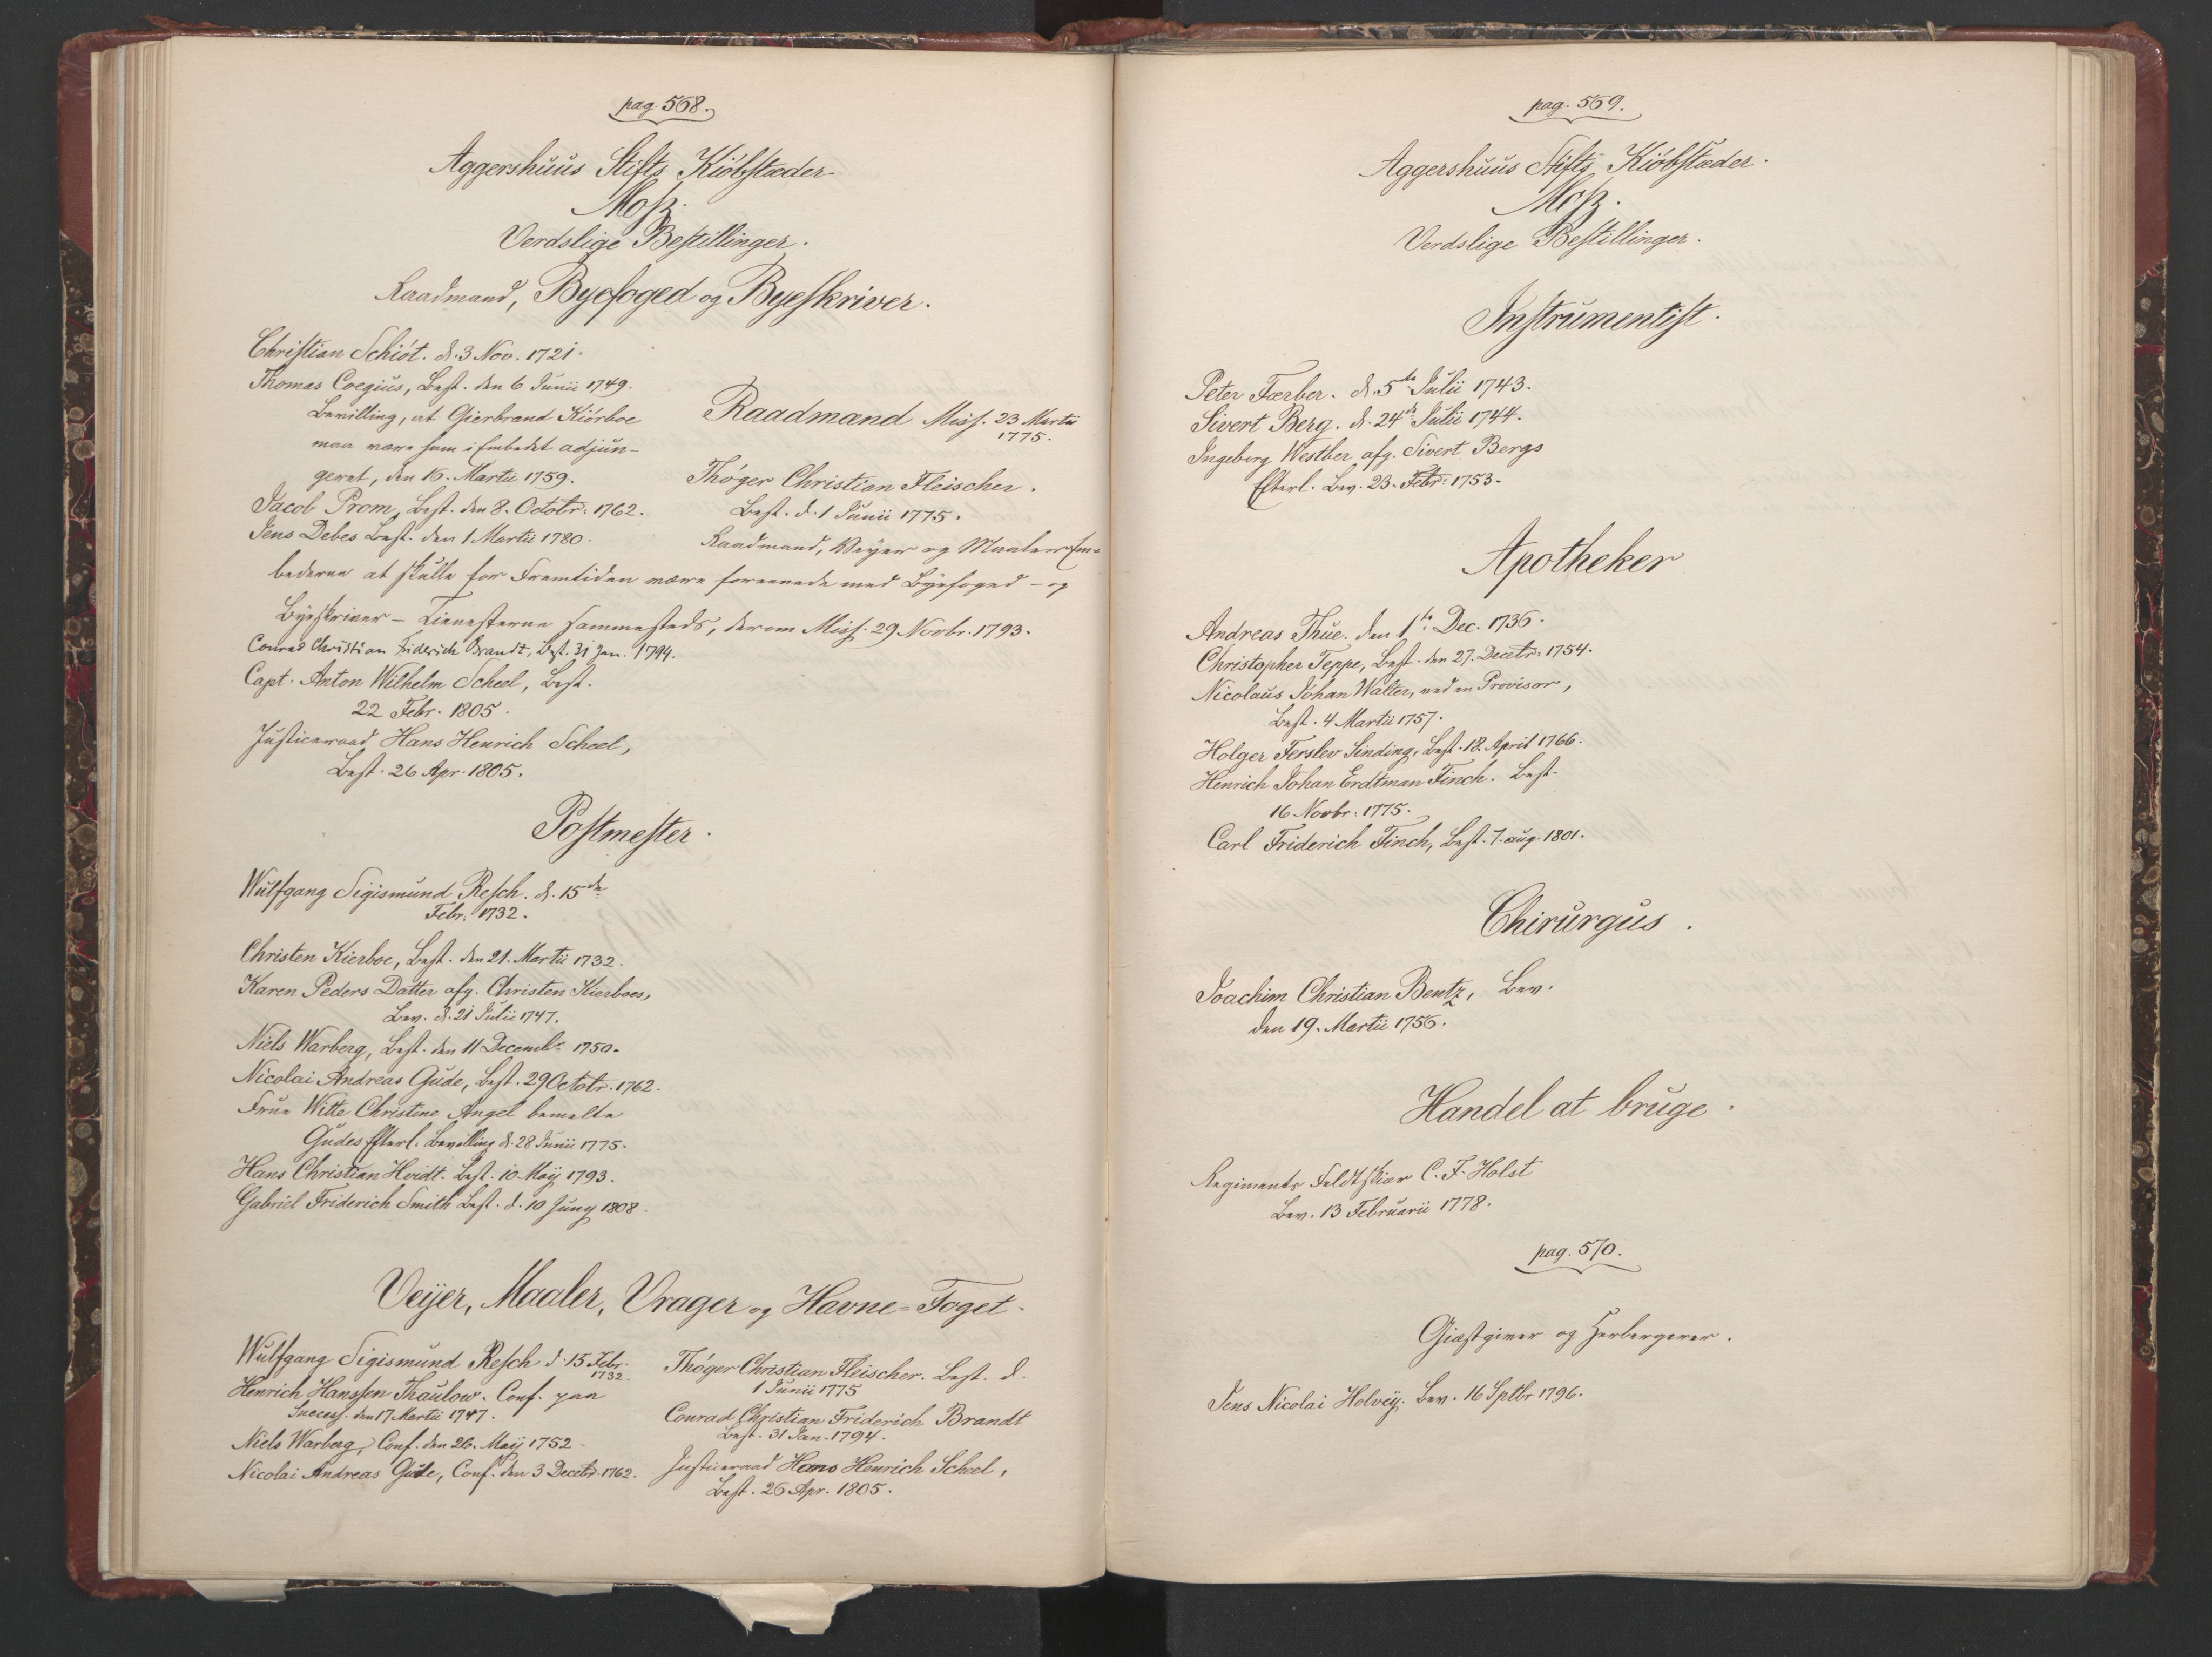 pag. 568.
Aggershuus Stifts Kiöbstæder.
Mosz.
Verdslige Bestillinger.
Raadmand, Byefoged og Byeskriver.
Christian Schiöt. d. 3 Nov. 1721.
Thomas Coegius, Best. den 6 Junii 1749.
Bevilling, at Gierbrand Kiörboe
maa være ham i Embedet adjun-
geret, den 16. Martii 1759.
Jacob Prom, Best. den 8. Octobr. 1762.
Jens Debes Best. den 1 Martii 1780.
Raadmænd Miss. 23 Martii
1775.
Thöger Christian Fleischer.
Best. d. 1 Junii 1775.
Raadmand, Veyer og Maaler Em-
bederne at skulle for Fremtiden være foreenede med Byefoged - og
Byeskriver - Tienesterne sammesteds, derom Miss. 29 Novbr. 1793.
Conrad Christian Friderich Brandt, Best. 31 Jan. 1794.
Capt. Anton Wilhelm Scheel, Best.
22 Febr. 1805.
Justiceraad Hans Henrich Scheel,
Best. 26 Apr. 1805.
Postmester.
Wulfgang Sigismund Resch. d. 15de
Febr. 1732.
Christen Kierboe, Best. den 21. Martii 1732.
Karen Peders Datter afg. Christen Kierboes,
Bev. d. 21 Julii 1747.
Niels Warberg, Best. den 11 Decembr. 1750.
Nicolai Andreas Gude, Best. 29 Octobr. 1762.
Frue Witte Christine Angel bemelte
Gudes Efterl. Bevilling d. 28 Junii 1775.
Hans Christian Hvidt. Best. 10 Maij 1793.
Gabriel Friderich Smith Best. d. 10 Juny 1808.
Veijer, Maaler, Vrager og Havne=Foget.
Wulfgang Sigismund Resch d. 15 Febr.
1732.
Henrich Hanssen Thaulow. Conf. paa
Success. den 17 Martii 1747.
Niels Warberg, Conf. den 26. Maij 1752.
Nicolai Andreas Gude, Conf. den 3 Decebr. 1762.
Thöger Christian Fleischer. Best. d.
1 Junii 1775
Conrad Christian Friderich Brandt
Best. 31 Jan. 1794.
Justiceraad Hans Henrich Scheel,
Best. 26 Apr. 1805.
pag. 569.
Aggershuus Stifts Kiöbstæder.
Mosz.
Verdslige Bestillinger.
Instrumentist.
Peter Færber. d. 5te Julii 1743.
Sivert Berg. d. 24de Julii 1744.
Ingeborg Westber afg. Sivert Bergs
Efterl. Bev. 23. Febr. 1753.
Apotheker
Andreas Thue. den 1te Dec. 1736.
Christopher Teppe, Best. den 27. Decebr. 1754.
Nicolaus Johan Walter, ved en Provisor,
Best. 4 Martii 1757.
Holger Ferslev Sinding, Best. 18. April 1766.
Henrich Johan Erdtman Finch. Best.
16 Novbr. 1775.
Carl Friderich Finch, Best. 7. aug. 1801.
Chirurgus.
Joachim Christian Bentz, Bev.
den 19. Martii 1756.
Handel at bruge.
Regiments Feldtskiær C. F. Holst
Bev. 13 Februarii 1778.
pag. 570.
Giæstgiver og Herbergerer.
Jens Nicolai Holvey. Bev. 16 Sptbr 1796.